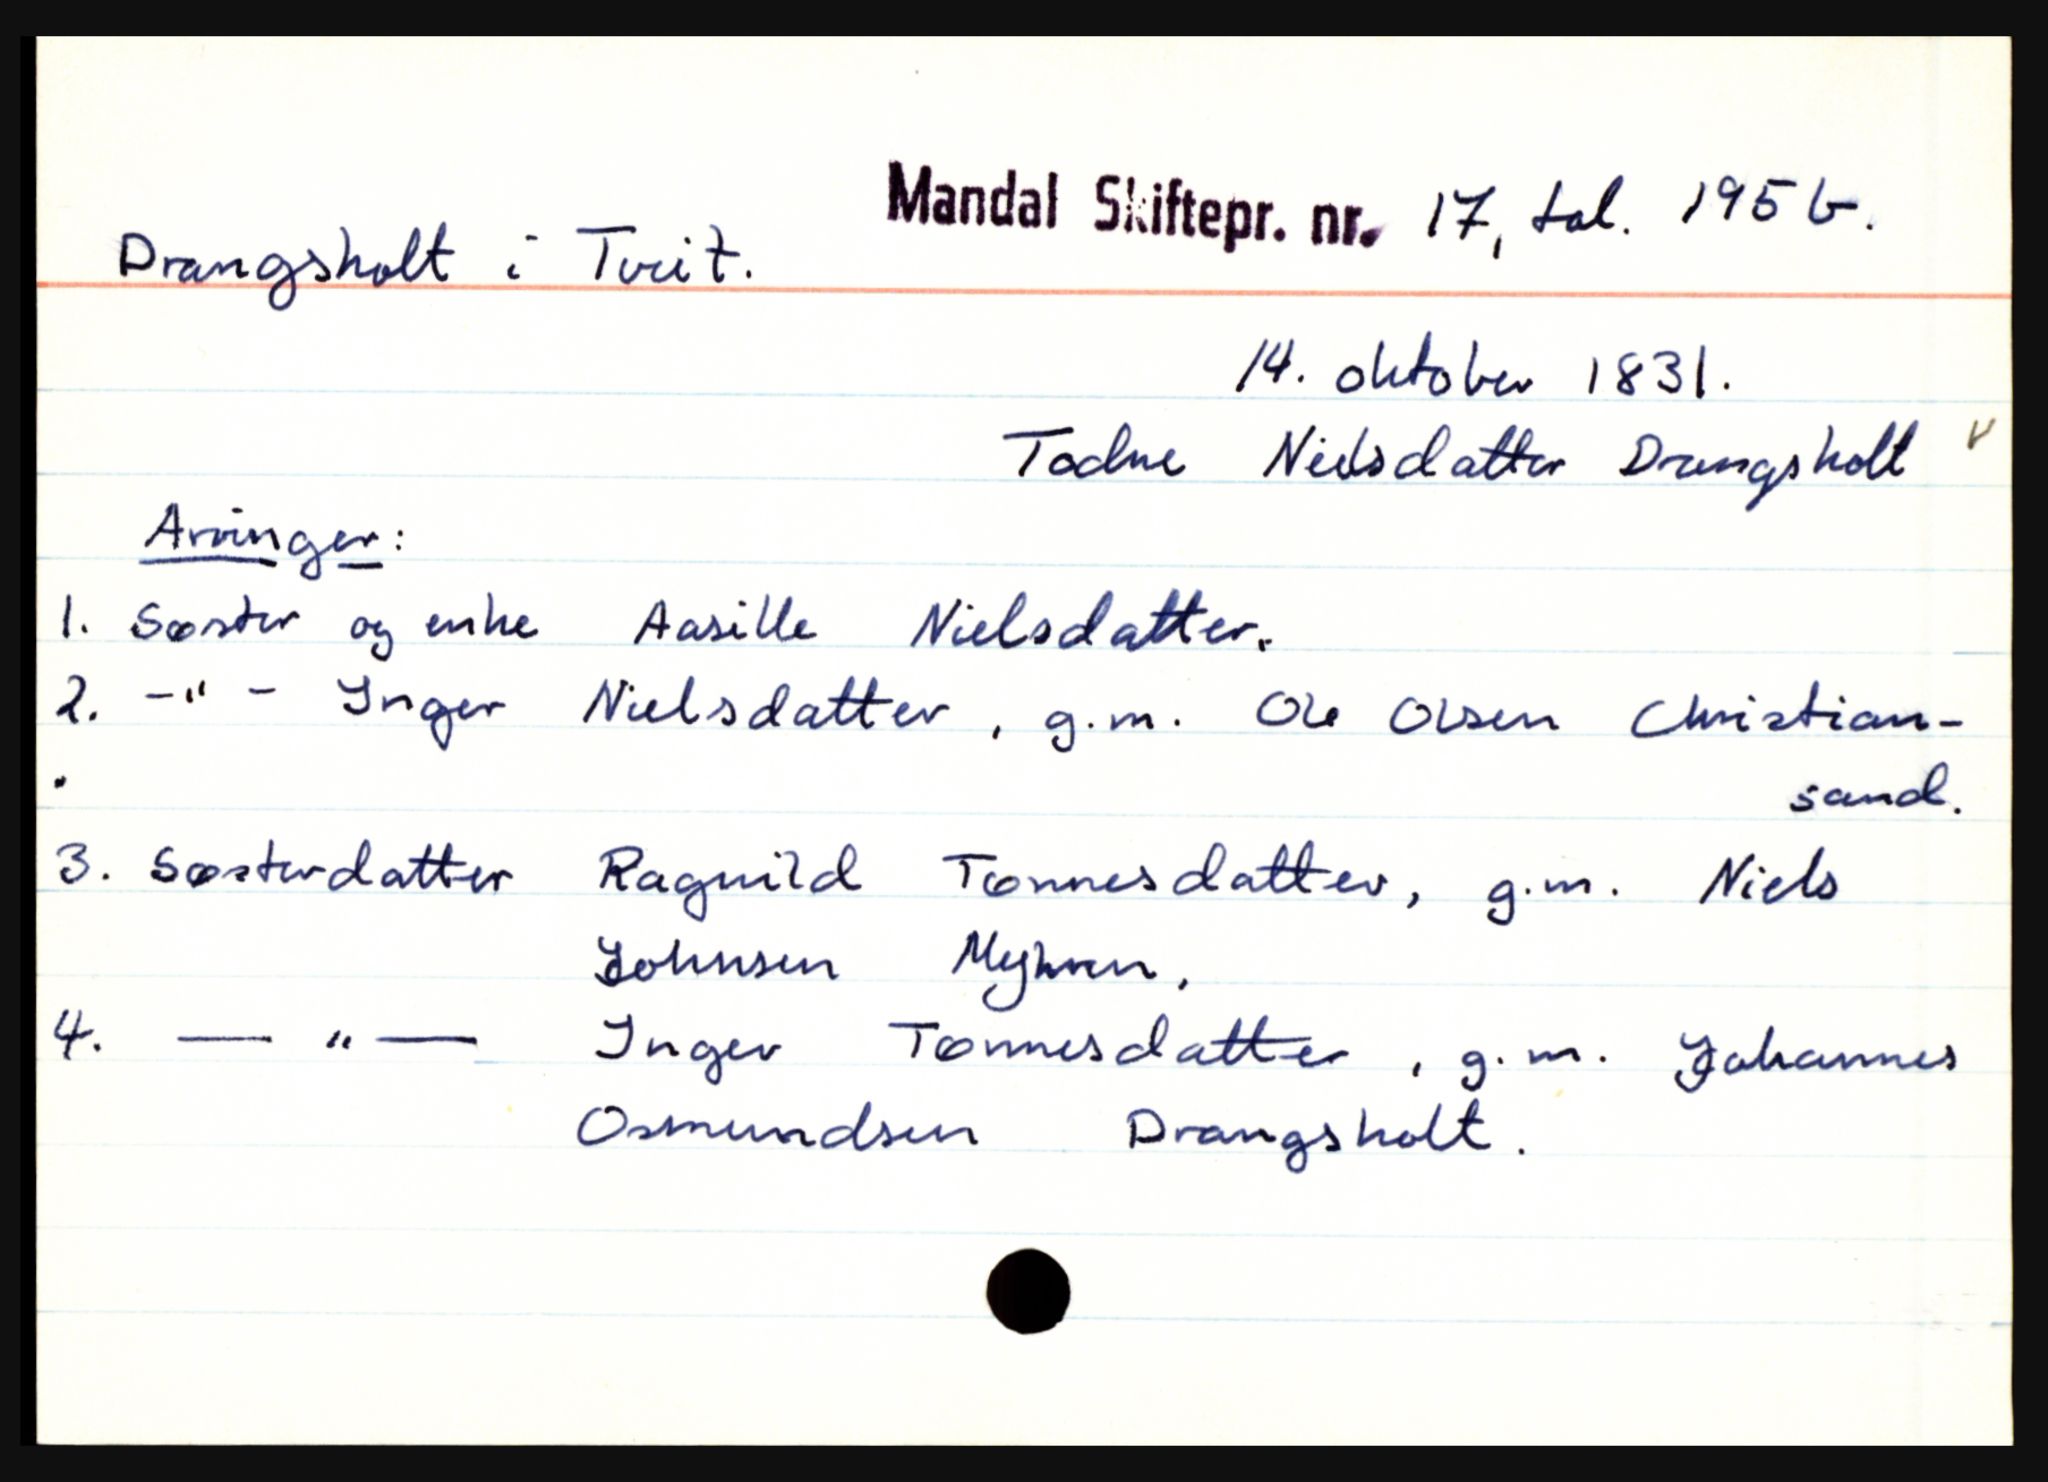 Mandal Skiftepr. nr. 17, fol. 195 b.
Drangsholt i Tveit.
14. oktober 1831.
Todne Nielsdatter Drangsholt
Arvinger:
1. Søster og enke Aasille Nielsdatter.
2. -"- Inger Nielsdatter, g.m. Ole Olsen Christian-
sand.
3. Søsterdatter Ragnild Tønnesdatter, g.m. Niels
Johnsen Myhren.
4. — " — Inger Tønnesdatter, g.m. Johannes
Osmundsen Drangsholt.